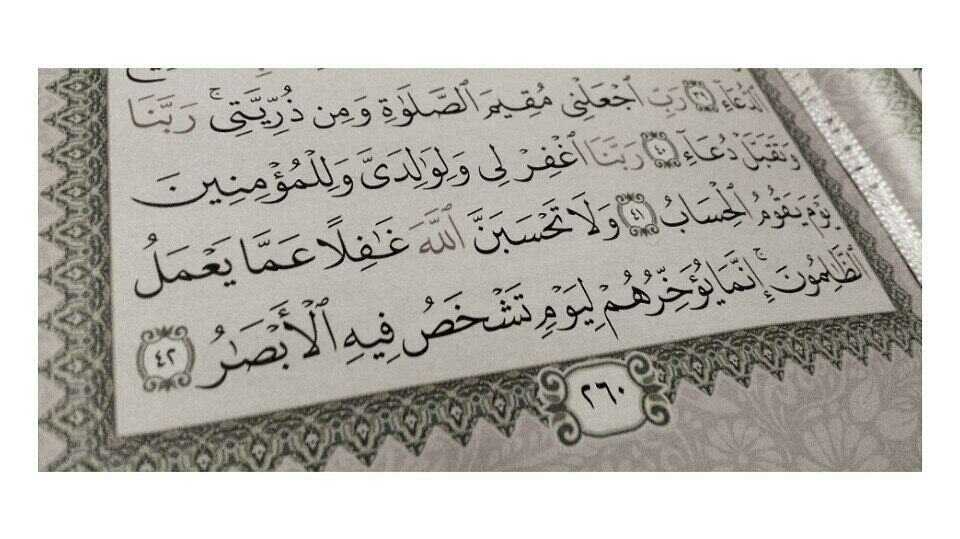 ٱلدُّعَآءِ ٣٩ رَبِّ ٱجۡعَلۡنِي مُقِيمَ ٱلصَّلَوٰةِ وَمِن ذُرِّيَّتِيۚ رَبَّنَا
وَتَقَبَّلۡ دُعَآءِ ٤٠ رَبَّنَا ٱغۡفِرۡ لِي وَلِوَٰلِدَيَّ وَلِلۡمُؤۡمِنِينَ
يَوۡمَ يَقُومُ ٱلۡحِسَابُ ٤١ وَلَا تَحۡسَبَنَّ ٱللَّهَ غَٰفِلًا عَمَّا يَعۡمَلُ
ٱلظَّٰلِمُونَۚ إِنَّمَا يُؤَخِّرُهُمۡ لِيَوۡمٖ تَشۡخَصُ فِيهِ ٱلۡأَبۡصَٰرُ ٤٢
٢٦٠